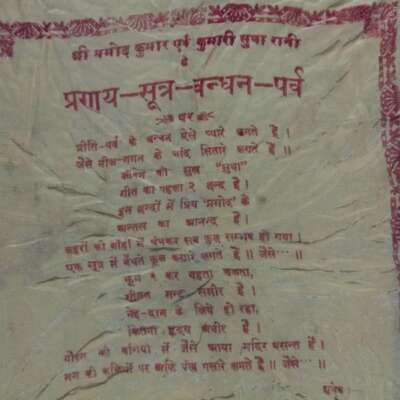 श्री प्रमोद कुमार एवं कुमारी सुधा रानी
के
प्रणय-सूत्र-बन्धन-पर्व
पर
प्रीति-पर्व के बन्धन ऐसे प्यारे लगते हैं ।
जैसे नील-गगन के चाँद सितारे लगते हैं ॥
की सुख "सुधा"
गीत का पहला २ छन्द है ।
इन छन्दों में प्रिय 'प्रमोद' के
अन्तस का आनन्द है ।
लहरों की बाँहों में बंधकर सब कुछ सम्भव हो गया ।
एक सूत्र में बँधते कूल कगारे लगते हैं ॥ जैसे...॥
झूम २ कर बहता चलता,
शीतल मन्द समीर है ।
नेह-दान के लिये हो रहा,
कितना हृदय अधीर है ।
की बगिया में जैसे आया मदिर बसन्त है ।
मन की कलियों पर अलि पंख पसारे लगते हैं ॥ जैसे...॥